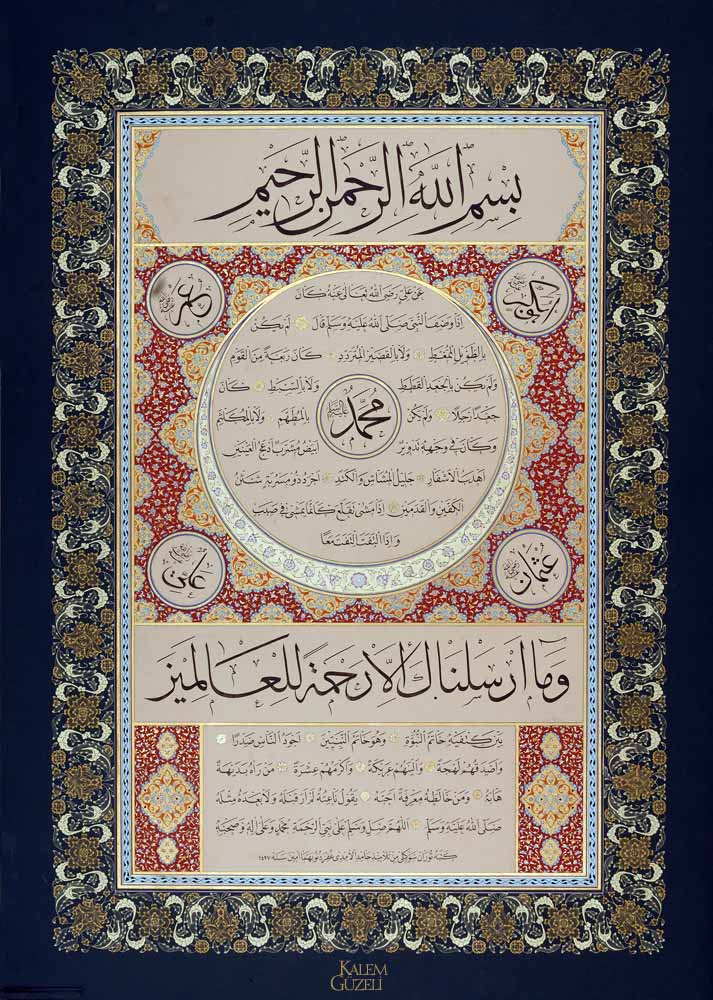 بسم الله الرحمن الرحيم
ابوبكر
عمر
عن علي رضي الله تعالى عنه كان
اذا وصف النبي صلى الله عليه وسلم قال لم يكن
بالطويل الممغط ولا بالقصير المتردد كان ربعة من القوم
ولم يكن بالجعد القطط ولا بالسبط كان
جعدا رجلا ولم يكن بالمطهم ولا بالمكلثم
محمد عليه السلام
وكان في وجهه تدوير ابيض مشرب ادعج العينين
اهدب الاشفار جليل المشاش والكتد اجرد ذو مسربة شثن
الكفين والقدمين اذا مشى تقلع كانما يمشي في صبب
واذا التفت التفت معا
عثمان
علي
وما ارسلناك الا رحمة للعالمين
بين كتفيه خاتم النبوة وهو خاتم النبيين اجود الناس صدرا
واصدقهم لهجة والينهم عريكة واكرمهم عشرة من راه بديهة
هابه ومن خالطه معرفة احبه يقول ناعته لم ار قبله ولا بعده مثله
صلى الله عليه وسلم اللهم صل وسلم على نبي الرحمة محمد وعلى اله وصحبه
KALEM
GÜZELİ